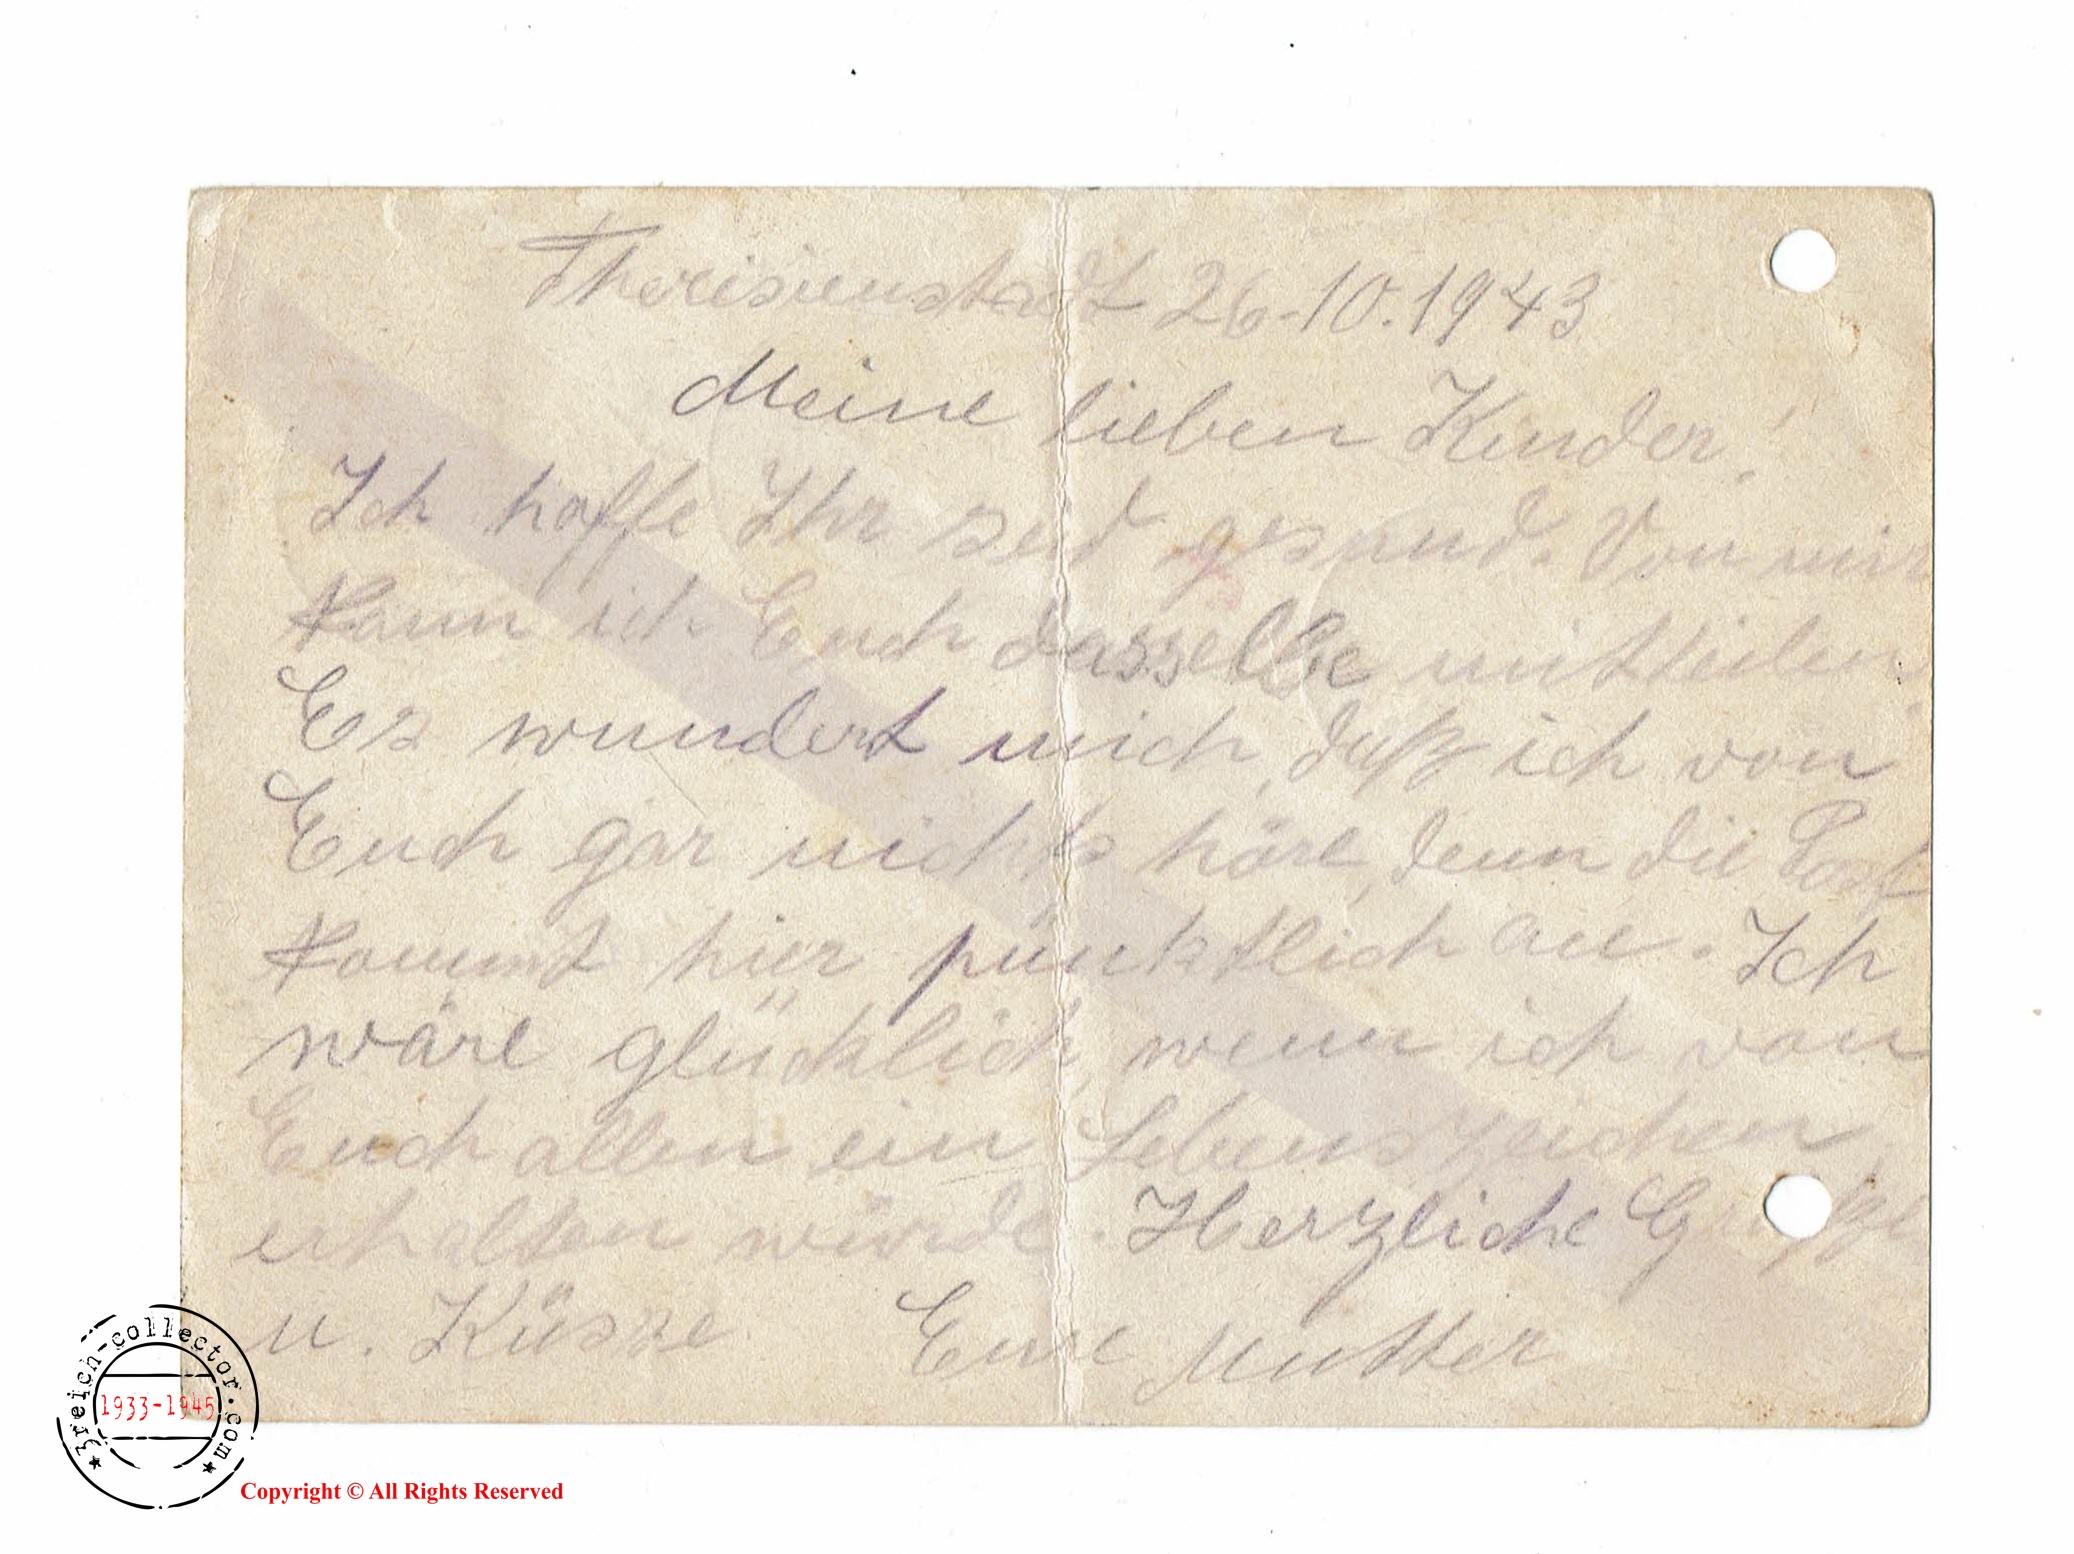 Theresienstadt 26.10.1943
Meine lieben Kinder!
Ich hoffe Ihr seid gesund. Von mir
kann ich Euch dasselbe mitteilen
Es wundert mich, daß ich von
Euch gar nichts höre, denn die Post
kommt hier pünktlich an. Ich
wäre glücklich, wenn ich von
Euch allen ein Lebenszeichen
erhalten würde. Herzliche Grüße
u. Küsse Eure Mutter
3reich-collector.com
1933-1945
Copyright © All Rights Reserved